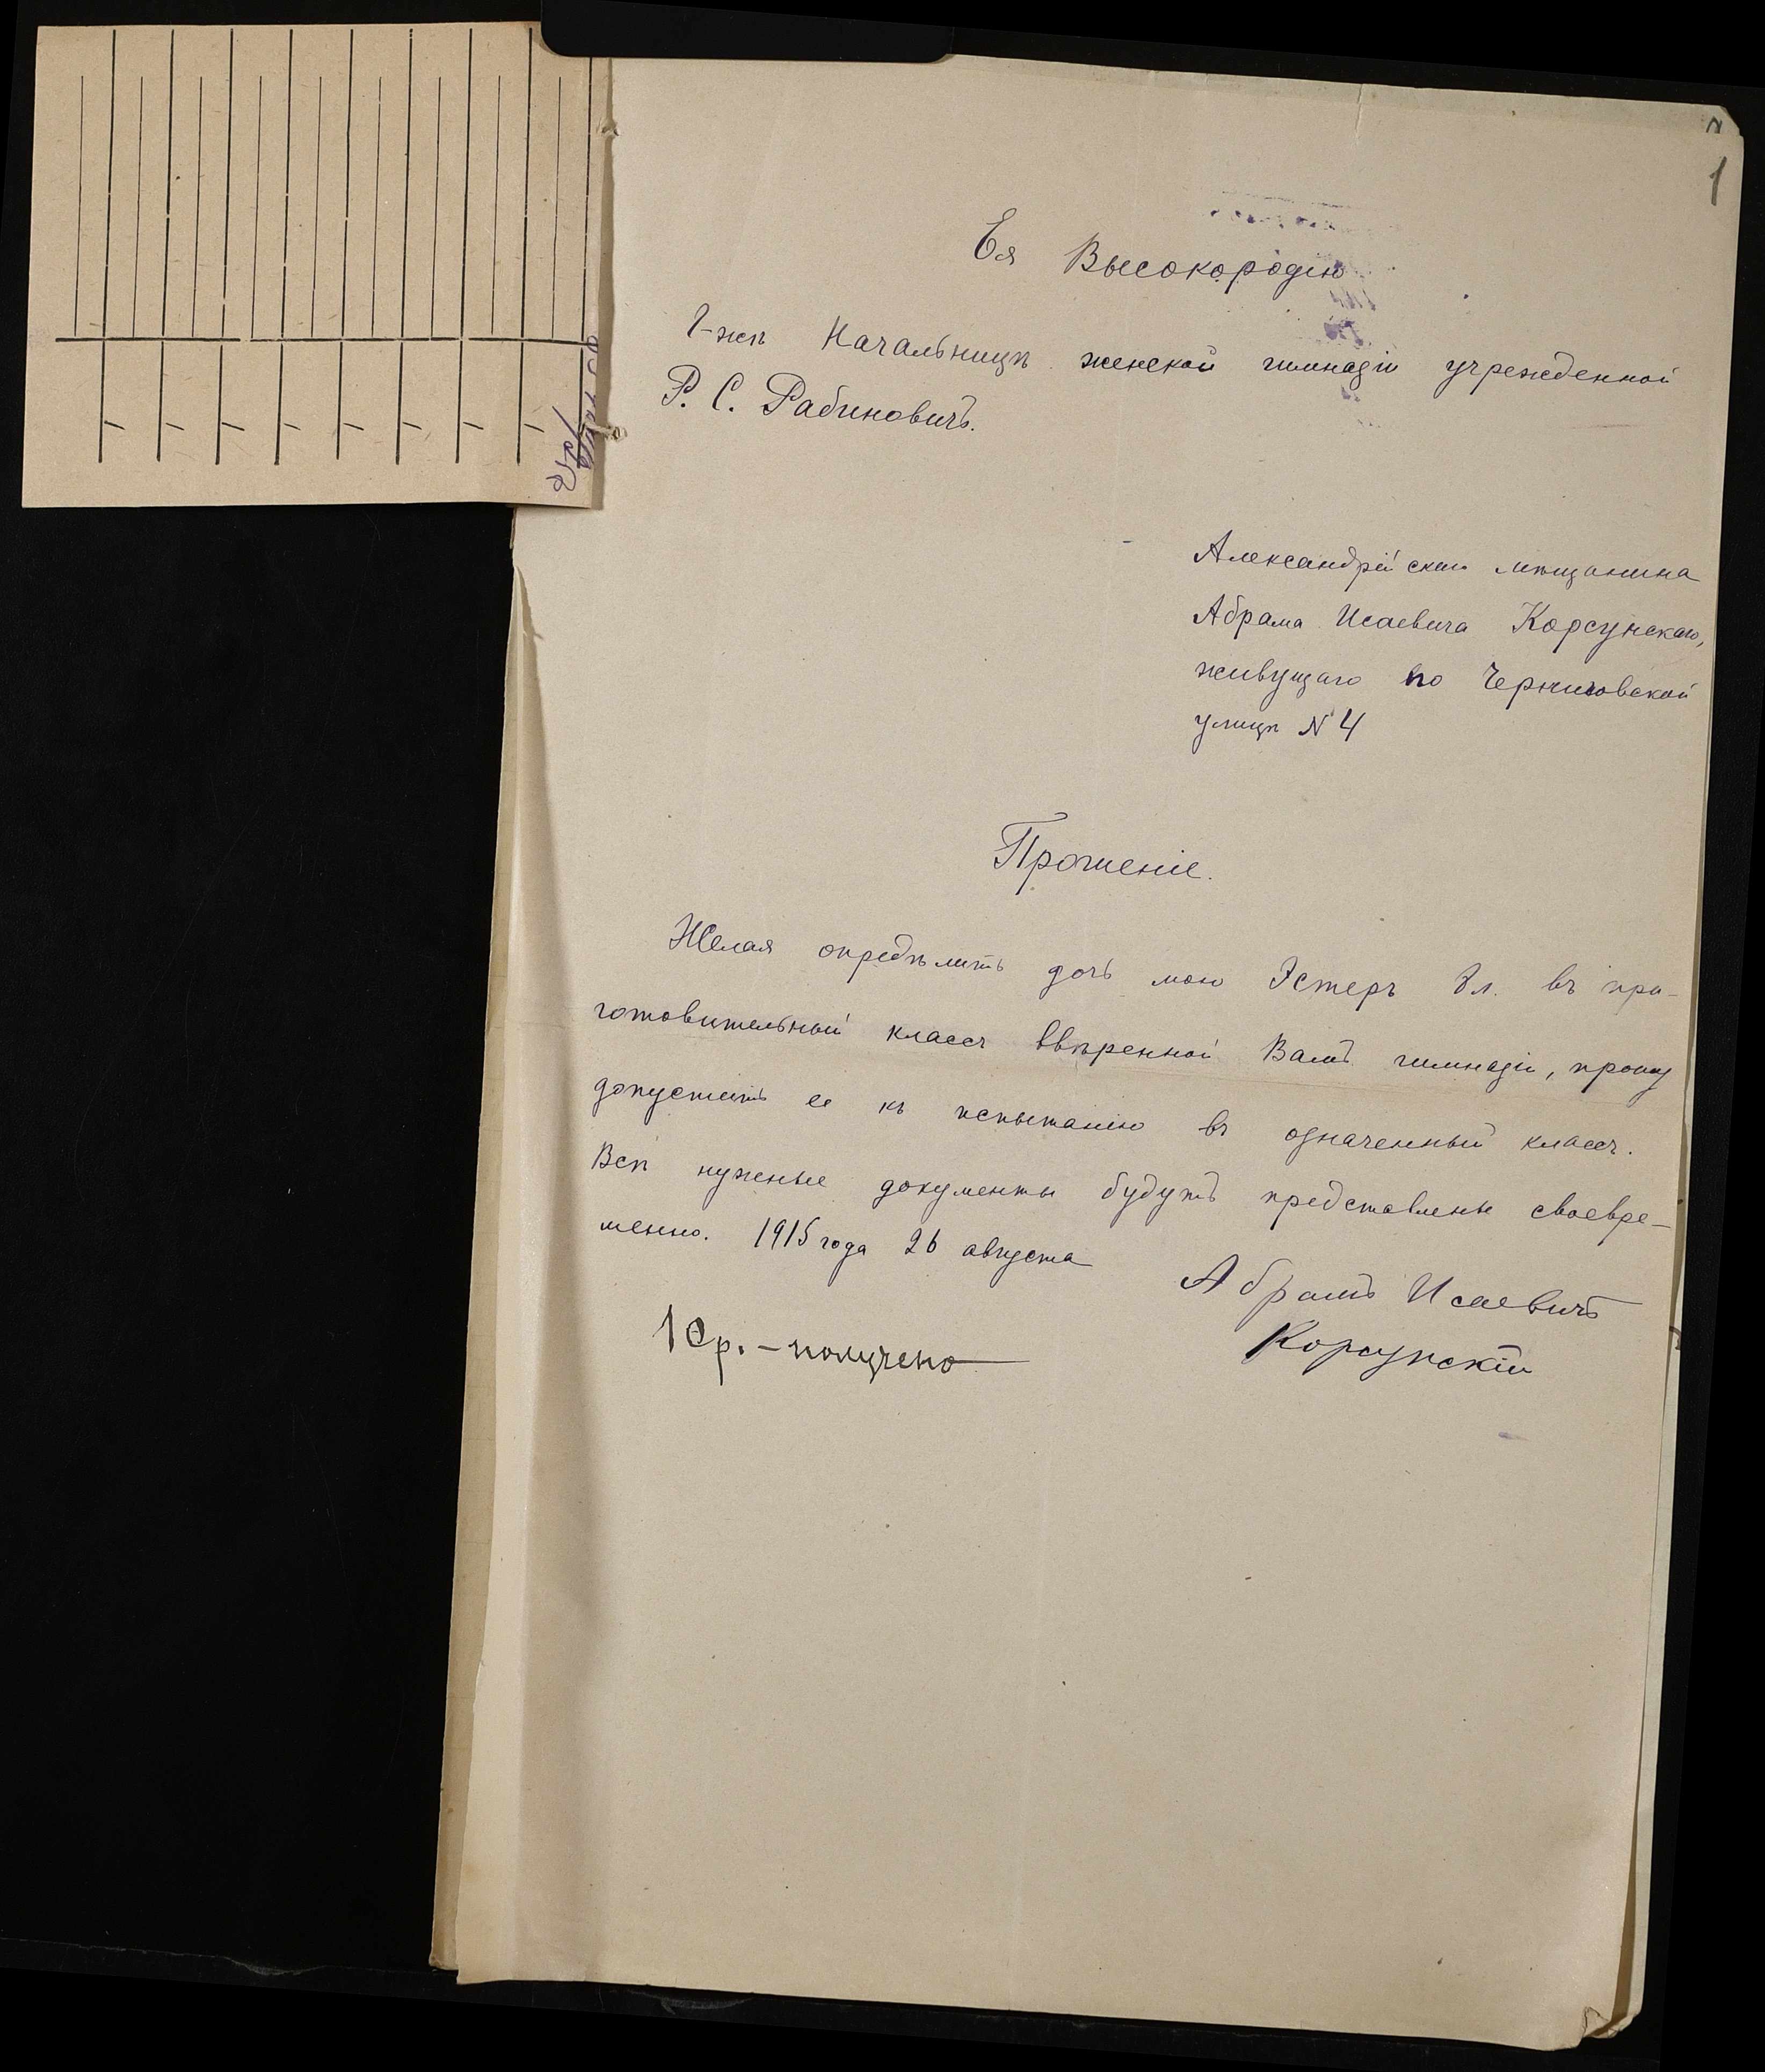 1
Ея Высокородію
Г-жѣ Начальницѣ женской гимназіи учрежденной
Р. С. Рабиновичъ.
Александрійскаго мѣщанина
Абрама Исаевича Корсунскаго,
живущаго по Черниговской
улицѣ N 4
Прошеніе.
Желая опредѣлить дочь мою Эстеръ 8 л. въ при-
готовительный классъ ввѣренной Вамъ гимназіи, прошу
допустить ее къ испытанію въ означенный классъ.
Всѣ нужные документы будутъ представлены своевре-
менно. 1915 года 26 августа
Абрамъ Исаевичъ
Корсунскій
10 р. – получено